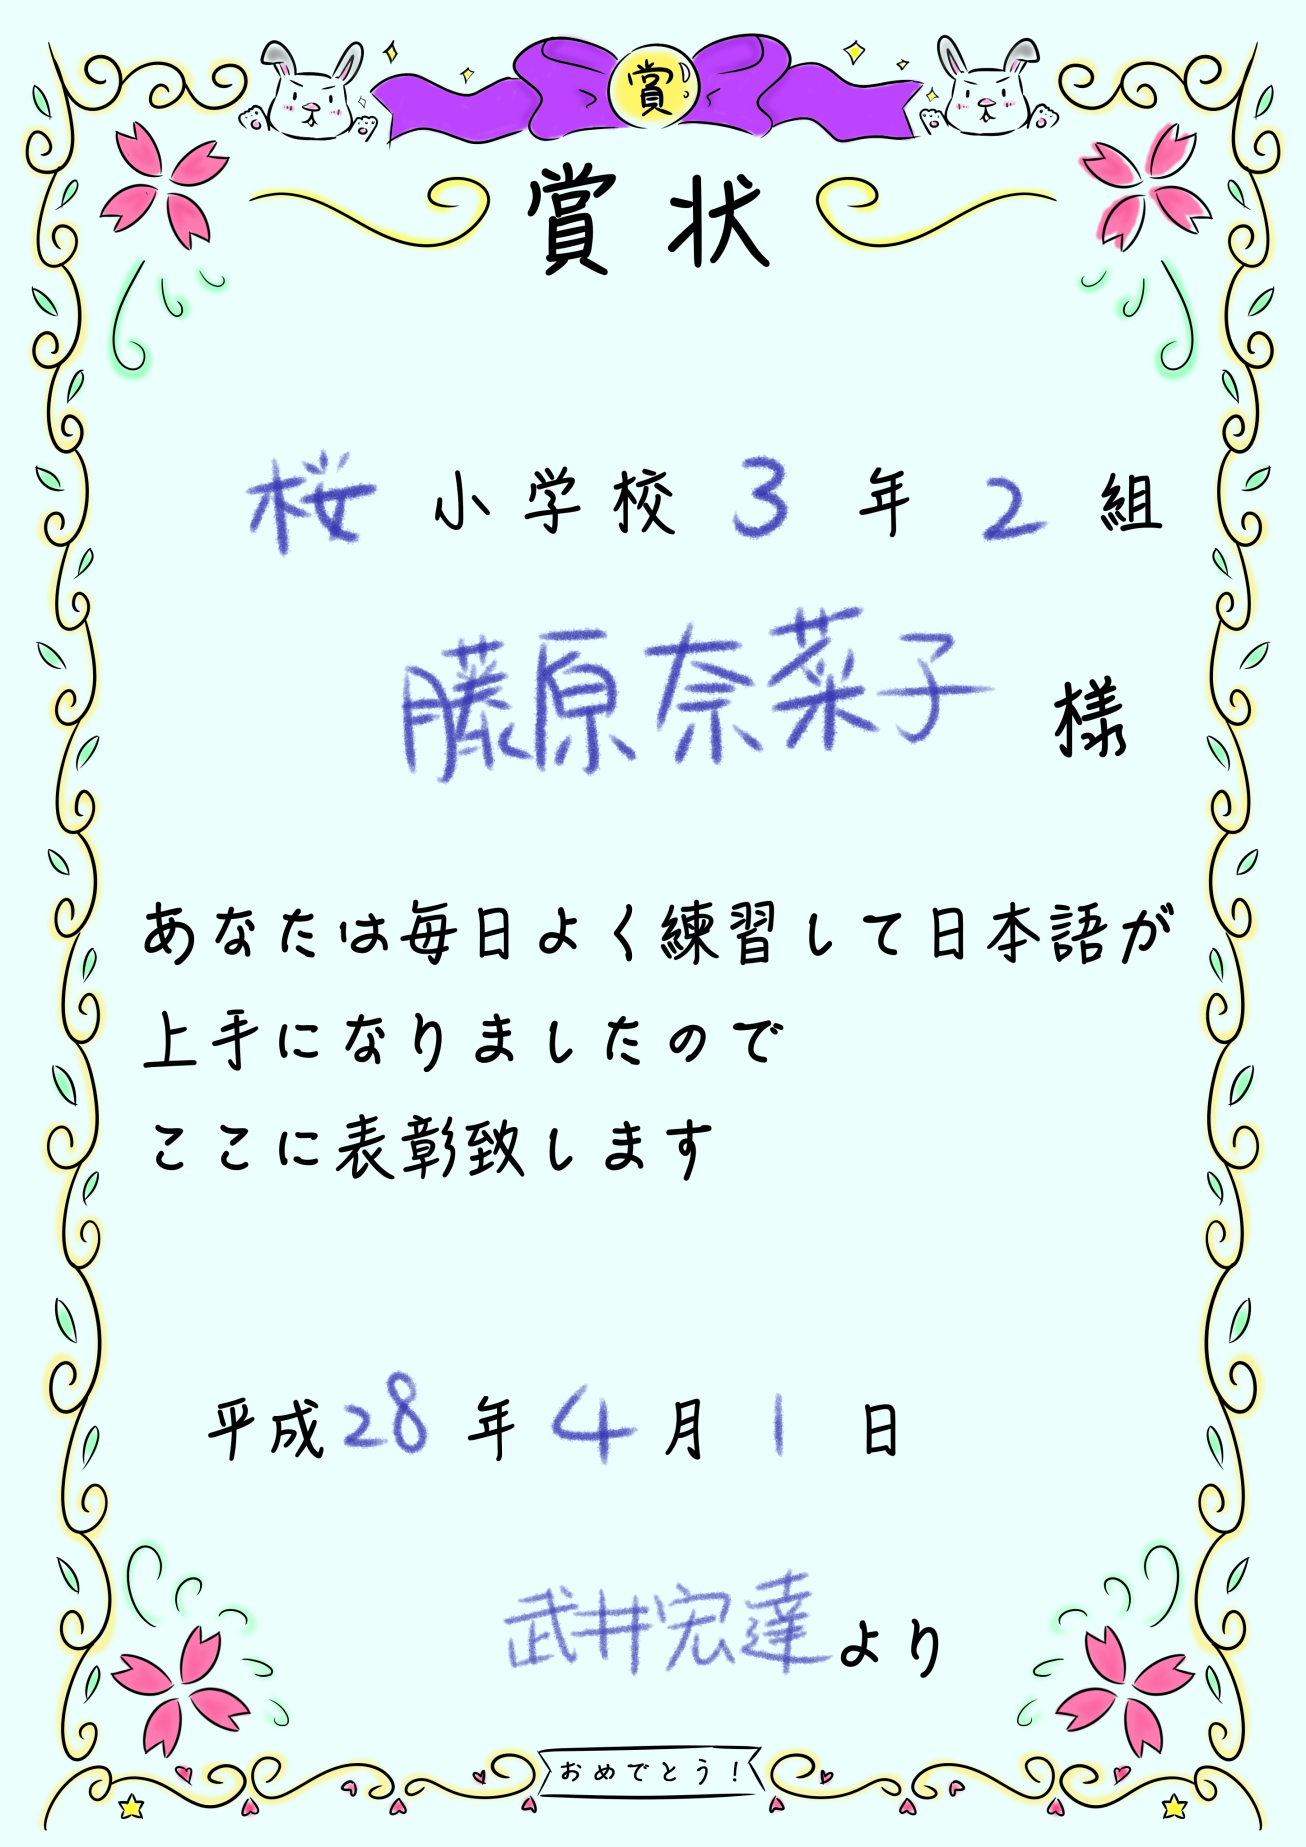 賞
賞状
桜小学校3年2組
藤原奈菜子様
あなたは毎日よく練習して日本語が
上手になりましたので
ここに表彰致します
平成28年4月1日
武井宏達より
おめでとう！